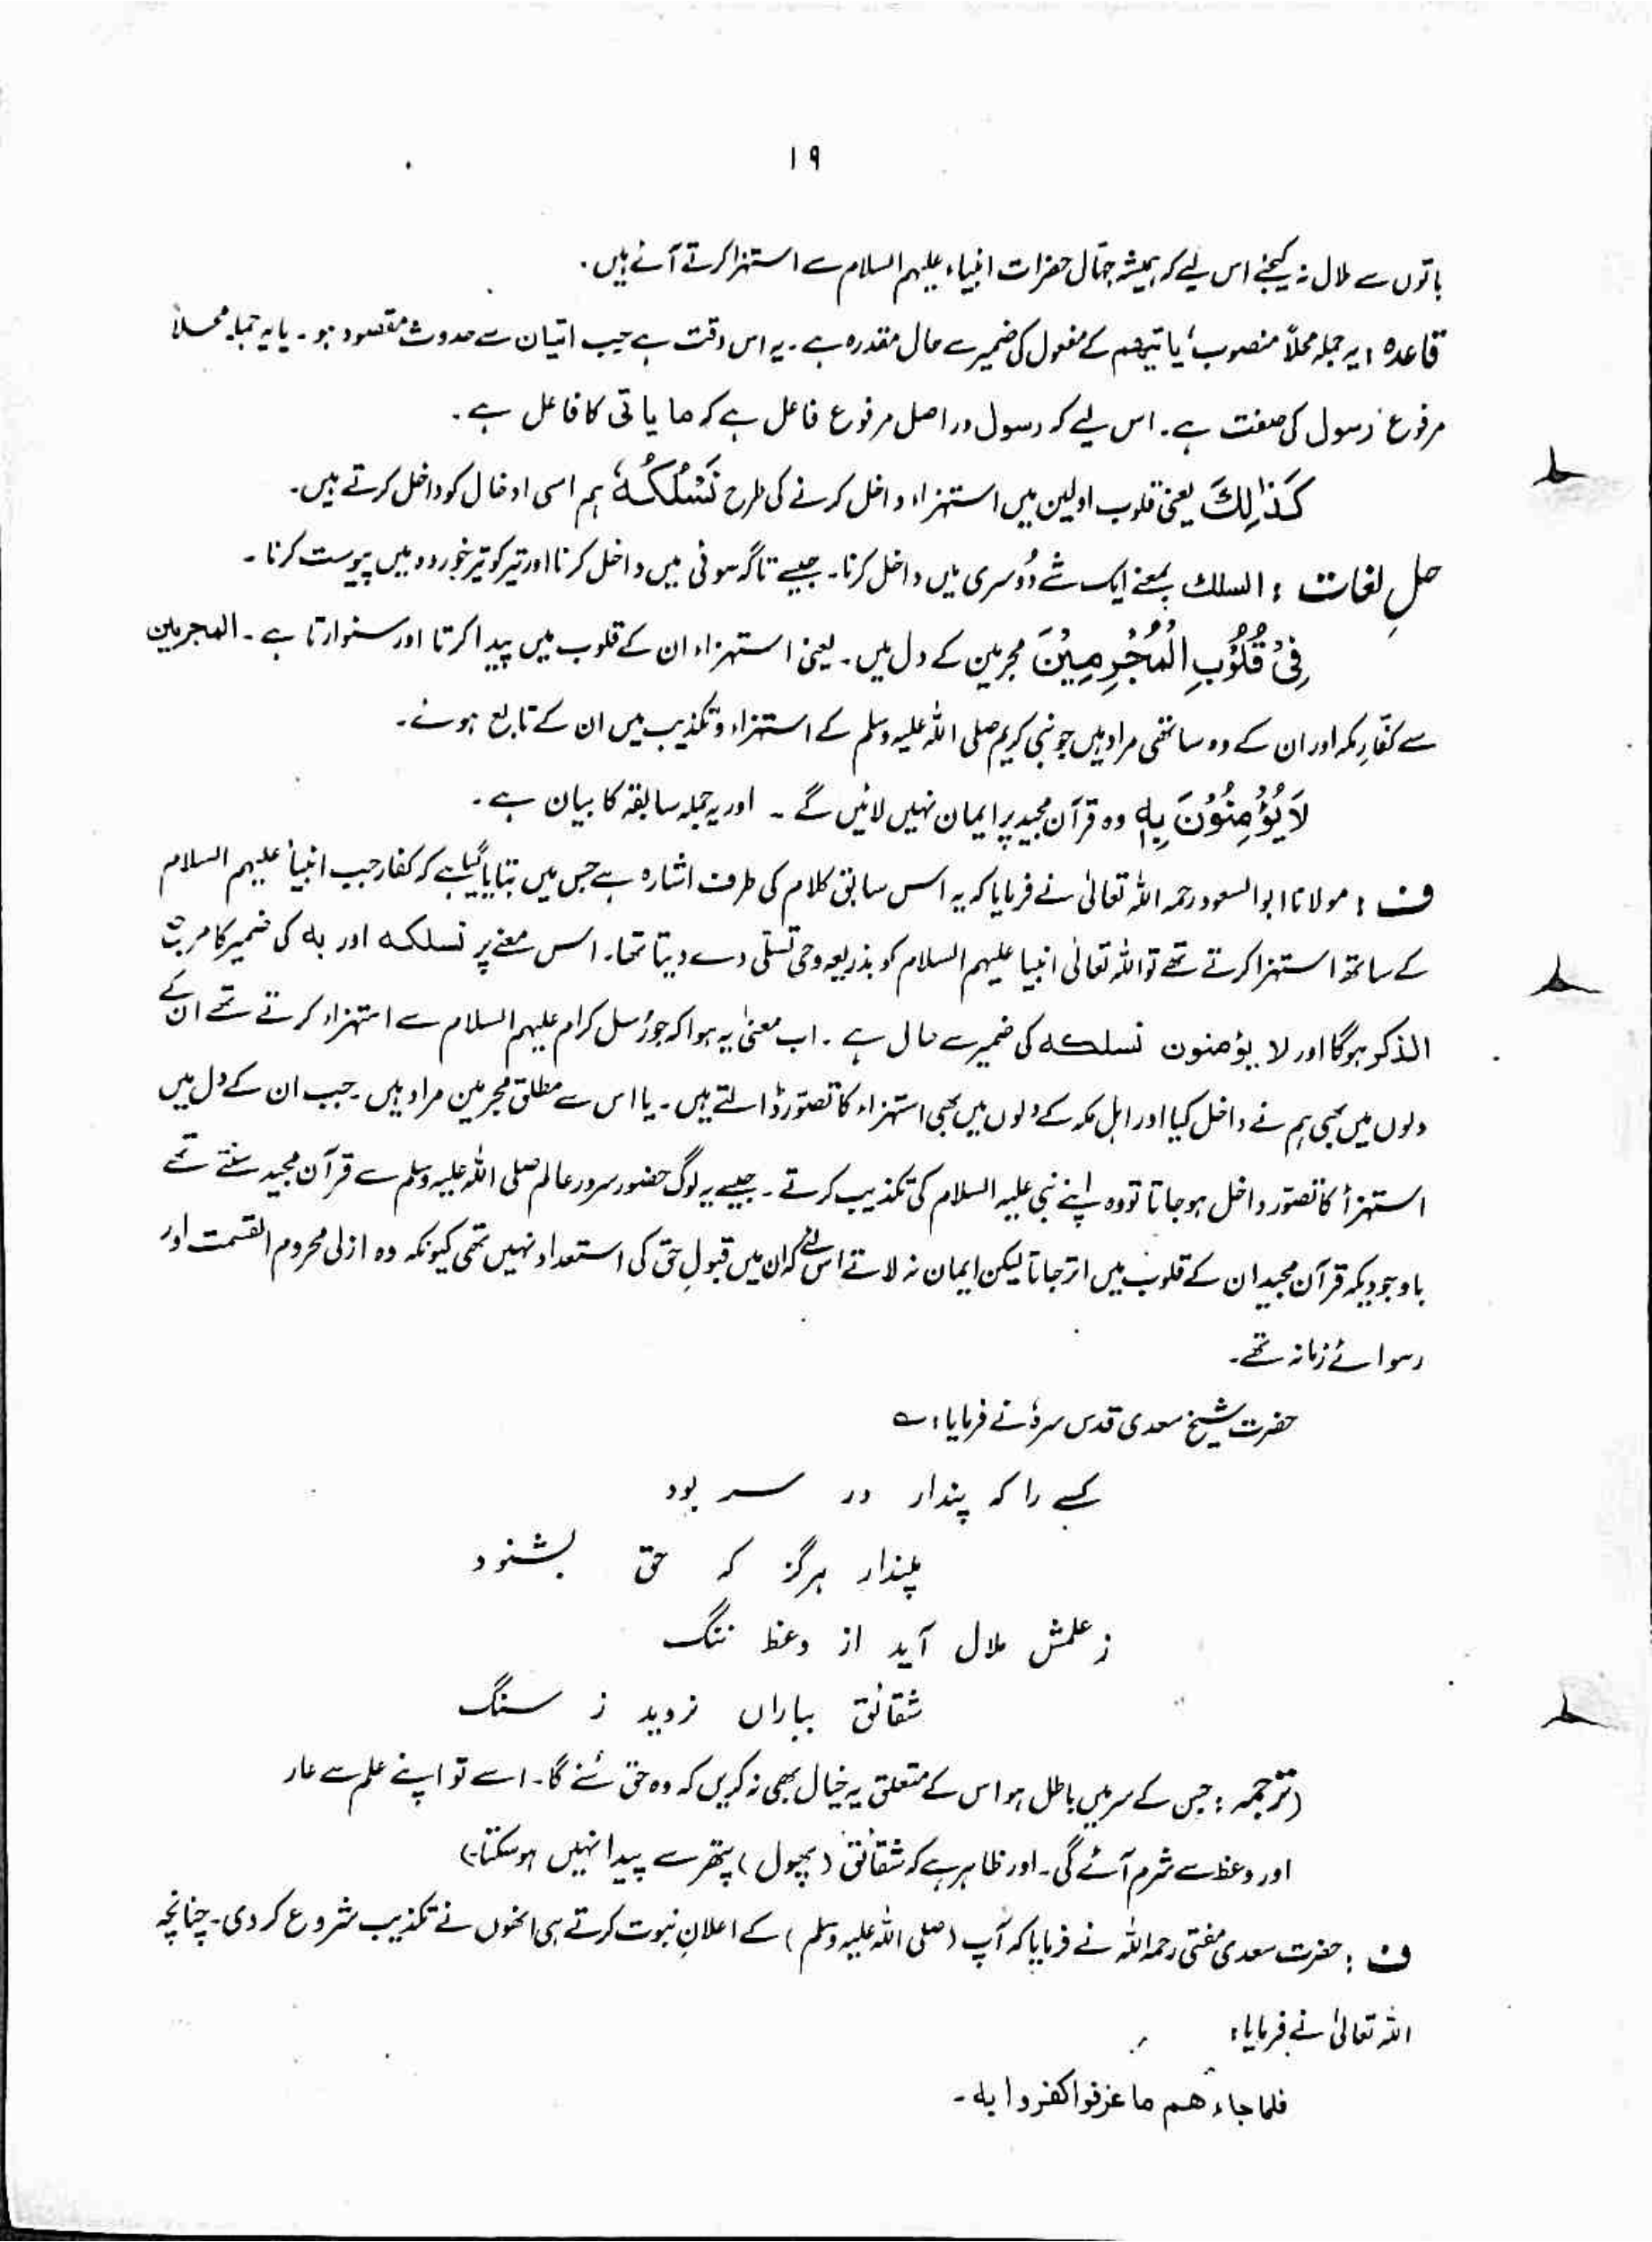 ۱۹
باتوں سے ملال نہ کیجئے اس لیے کہ ہمیشہ جہّال حضرات انبیاء علیہم السلام سے استہزا کرتے آئے ہیں۔
قاعدہ : یہ جملہ محلاً منصوب، یاتیھم کے مفعول کی ضمیر سے حال مقدرہ ہے۔ یہ اس وقت ہے جب اتیان سے حدوث مقصود ہو۔ یا یہ جملہ محلاً
مرفوع رسول کی صفت ہے۔ اس لیے کہ رسول دراصل مرفوع فاعل ہے کہ ما یاتی کا فاعل ہے۔
كَذٰلِكَ یعنی قلوب اولین میں استہزاء داخل کرنے کی طرح نَسْلُكُهٗ ہم اسی ادخال کو داخل کرتے ہیں۔
حلِ لغات : السلك بمعنے ایک شے دُوسری میں داخل کرنا۔ جیسے تاگہ سوئی میں داخل کرنا اور تیر کو تیر خوردہ میں پیوست کرنا ۔
فِیْ قُلُوْبِ الْمُجْرِمِیْنَ مجرمین کے دل میں۔ یعنی استہزاء ان کے قلوب میں پیدا کرتا اور سنوارتا ہے۔ المجرمین
سے کفّارِ مکہ اور ان کے وہ ساتھی مراد ہیں جو نبی کریم صلی اللہ علیہ وسلم کے استہزاء و تکذیب میں ان کے تابع ہوئے۔
لَا یُؤْمِنُوْنَ بِهٖ وہ قرآن مجید پر ایمان نہیں لائیں گے ۔ اور یہ جملہ سابقہ کا بیان ہے ۔
ف : مولانا ابوالسعود رحمہ اللہ تعالیٰ نے فرمایا کہ یہ اس سابق کلام کی طرف اشارہ ہے جس میں بتایا گیا ہے کہ کفار جب انبیأ علیہم السلام
کے ساتھ استہزا کرتے تھے تو اللہ تعالیٰ انبیا علیہم السلام کو بذریعہ وحی تسلّی دے دیتا تھا۔ اس معنے پر نسلکہ اور بہ کی ضمیر کا مرجع
الذکر ہوگا اور لا یؤمنون نسلکہ کی ضمیر سے حال ہے ۔ اب معنیٰ یہ ہوا کہ جو رُسل کرام علیہم السلام سے استہزاء کرتے تھے ان کے
دلوں میں بھی ہم نے داخل کیا اور اہل مکہ کے دلوں میں بھی استہزاء کا تصوّر ڈالتے ہیں ۔ یا اس سے مطلق مجرمین مراد ہیں ۔ جب ان کے دل میں
استہزأ کا تصوّر داخل ہو جاتا تو وہ اپنے نبی علیہ السلام کی تکذیب کرتے ۔ جیسے یہ لوگ حضور سرور عالم صلی اللہ علیہ وسلم سے قرآن مجید سنتے تھے
باوجودیکہ قرآن مجید ان کے قلوب میں اتر جاتا لیکن ایمان نہ لاتے اس لئے کہ ان میں قبولِ حق کی استعداد نہیں تھی کیونکہ وہ ازلی محروم القسمت اور
رسوائے زمانہ تھے۔
حضرت شیخ سعدی قدس سرہٗ نے فرمایا : ؎
کسے را کہ پندار در سر بود
مپندار ہرگز کہ حق بشنود
ز علمش ملال آید از وعظ ننگ
شقائق بباراں نروید ز سنگ
(ترجمہ : جس کے سر میں باطل ہو اس کے متعلق یہ خیال بھی نہ کریں کہ وہ حق سُنے گا۔ اسے تو اپنے علم سے عار
اور وعظ سے شرم آئے گی۔ اور ظاہر ہے کہ شقائق (پھول) پتھر سے پیدا نہیں ہو سکتا۔)
ف : حضرت سعدی مفتی رحمہ اللہ نے فرمایا کہ آپ (صلی اللہ علیہ وسلم) کے اعلانِ نبوت کرتے ہی انھوں نے تکذیب شروع کر دی۔ چنانچہ
اللہ تعالیٰ نے فرمایا :
فلما جاءھم ما عرفوا کفروا بہ ۔